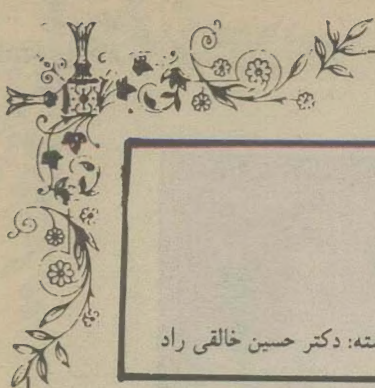 سته: دکتر حسین خالقی راد